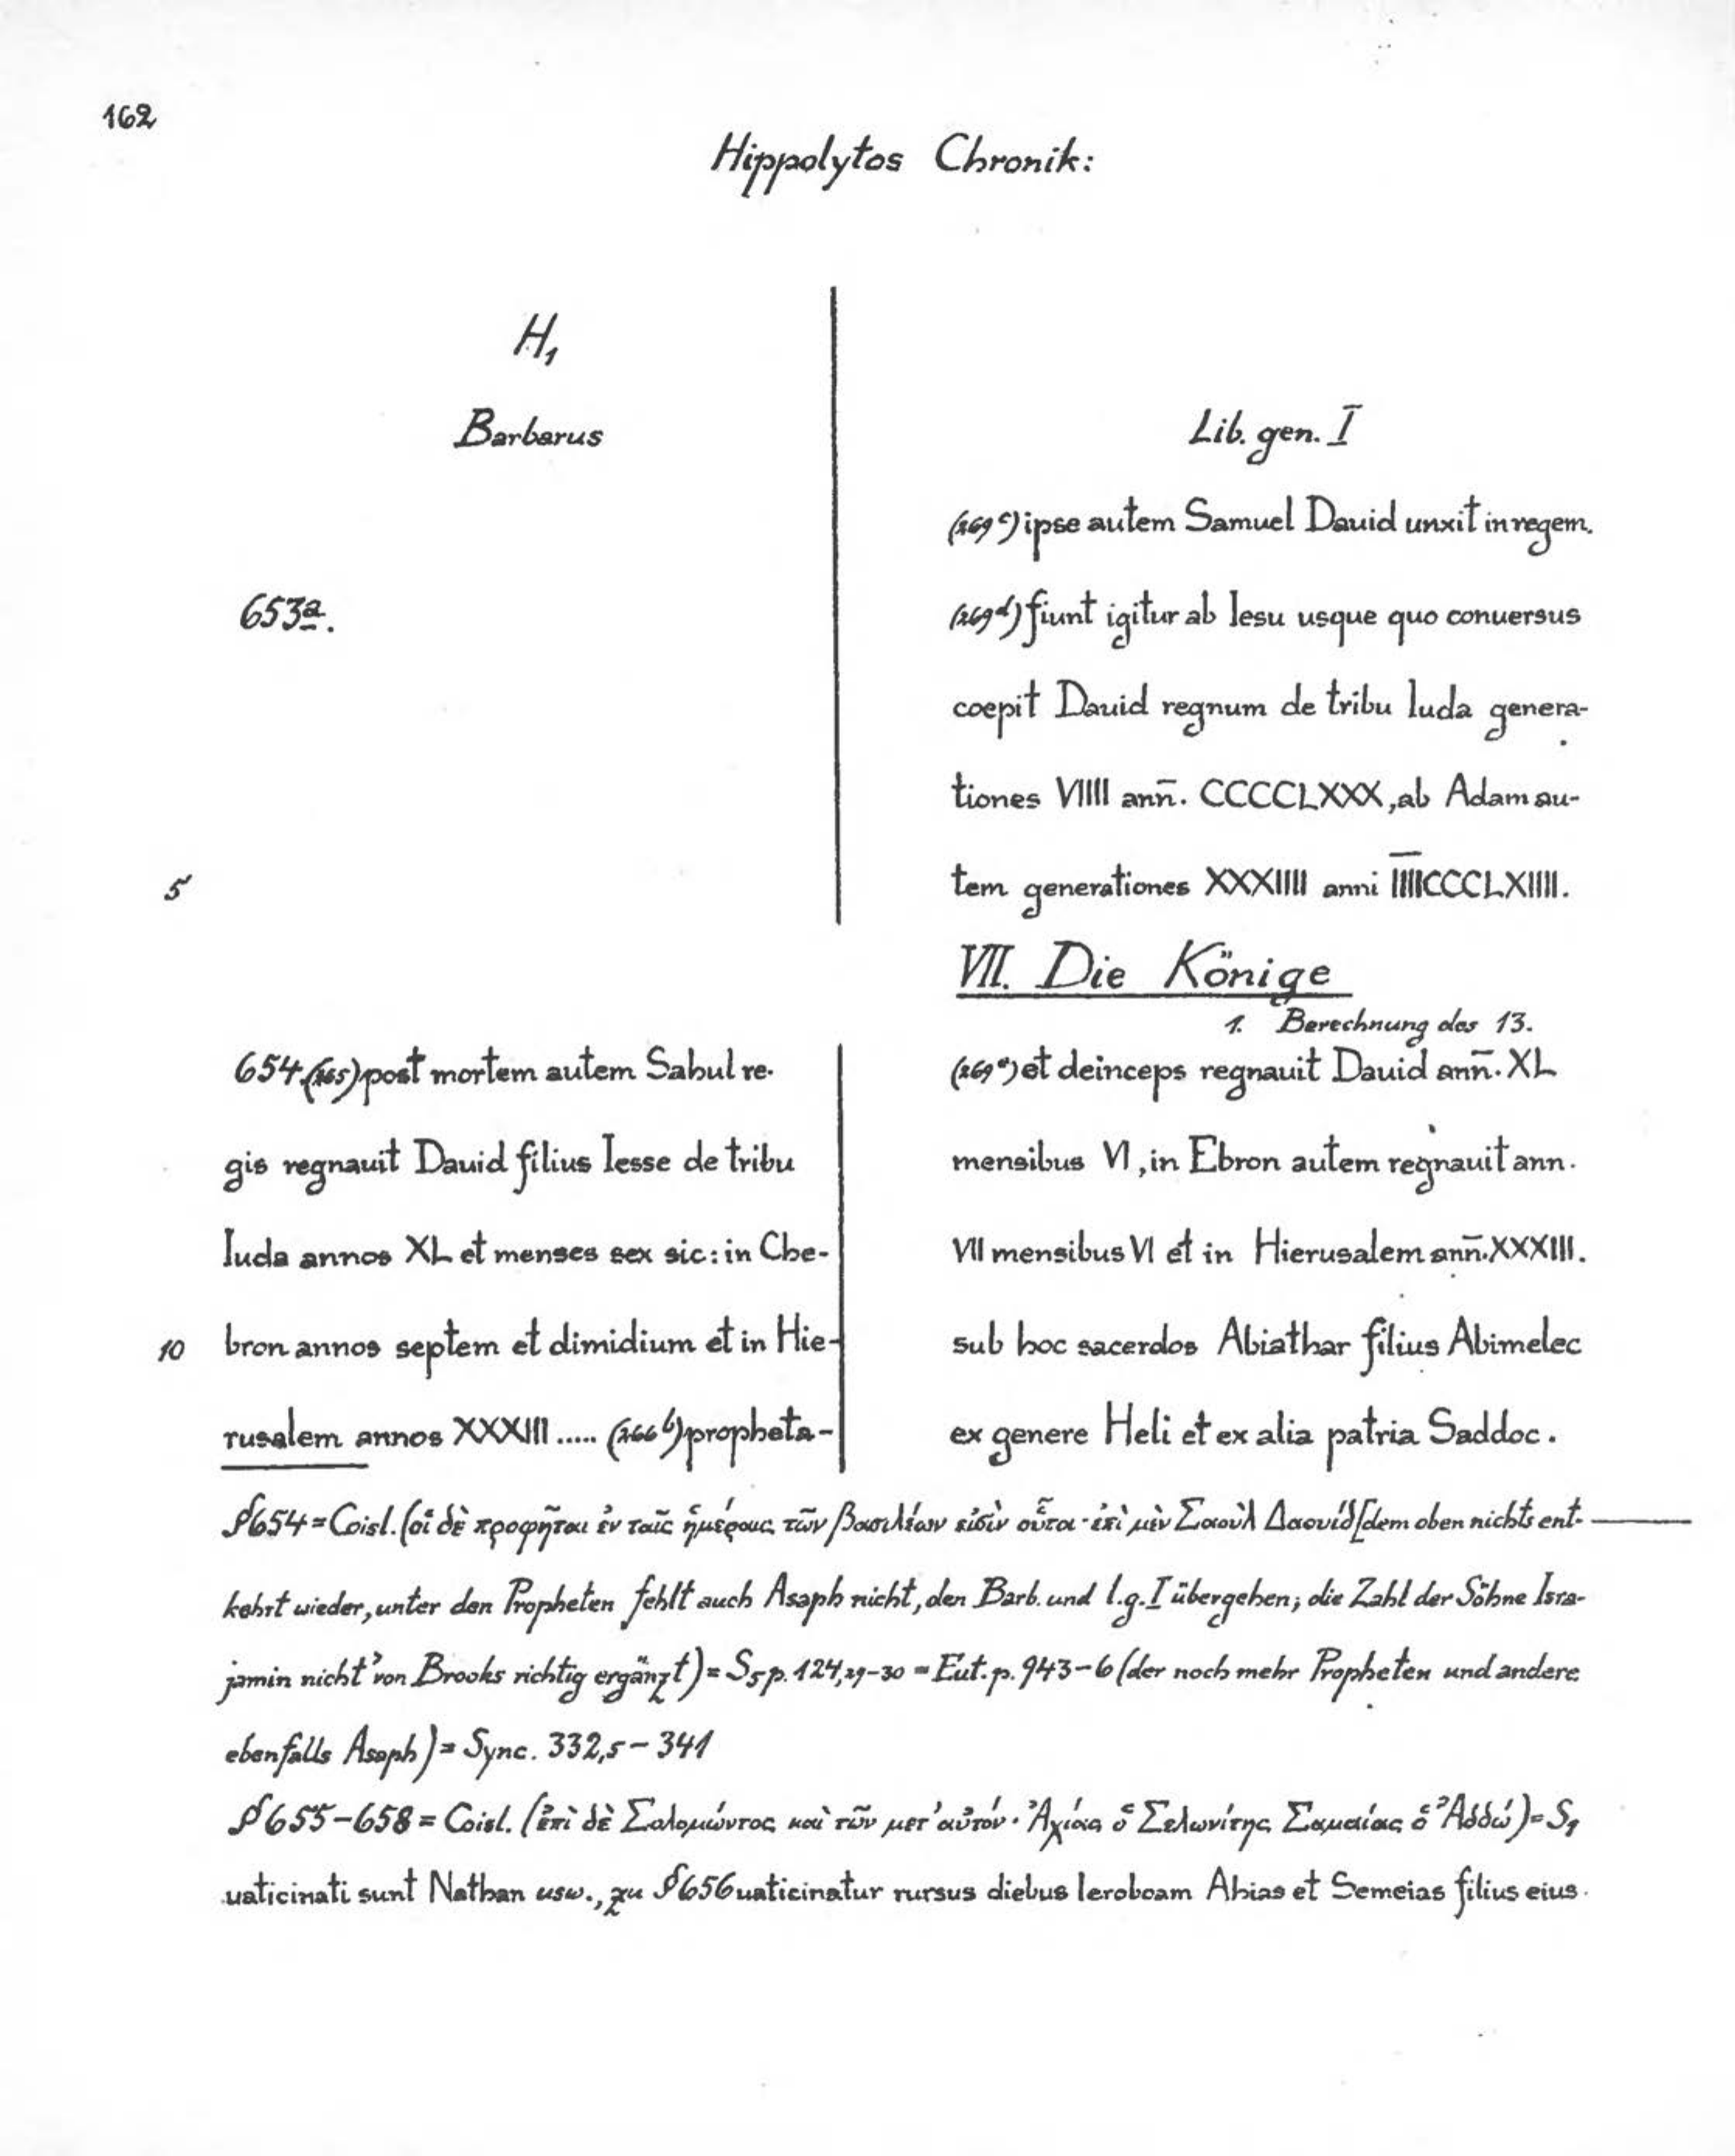 162
Hippolytos Chronik:
H₁
Barbarus
653a.
5
Lib. gen. Ī
(269 c) ipse autem Samuel Dauid unxit in regem.
(269 d) fiunt igitur ab Iesu usque quo conuersus
coepit Dauid regnum de tribu Iuda genera-
tiones VIIII ann̄. CCCCCLXXX, ab Adam au-
tem generationes XXXIIII anni I̅I̅I̅I̅CCCLXIIII.
VII. Die Könige
1. Berechnung des 13.
654. (265) post mortem autem Sabul re-
gis regnauit Dauid filius Iesse de tribu
Iuda annos XL et menses sex sic: in Che-
10 bron annos septem et dimidium et in Hie-
rusalem annos XXXIII ..... (266 b) propheta-
(269 e) et deinceps regnauit Dauid ann̄. XL
mensibus VI, in Ebron autem regnauit ann.
VII mensibus VI et in Hierusalem ann̄. XXXIII.
sub hoc sacerdos Abiathar filius Abimelec
ex genere Heli et ex alia patria Saddoc.
§654 = Coisl. (οἱ δὲ προφῆται ἐν ταῖς ἡμέραις τῶν βασιλέων εἰσὶν οὗτοι· ἐπὶ μὲν Σαοὺλ Δαουίδ [dem oben nichts ent-
kehrt wieder, unter den Propheten fehlt auch Asaph nicht, den Barb. und l.g. I übergehen; die Zahl der Söhne Isra-
jamin nicht von Brooks richtig ergänzt) = S₅ p. 124,29-30 = Eut. p. 943-6 (der noch mehr Propheten und andere
ebenfalls Asaph) = Sync. 332,5 - 341
§655-658 = Coisl. (ἐπὶ δὲ Σαλομώντος καὶ τῶν μετ' αὐτόν· Ἀχίας ὁ Σελωνίτης Σαμαίας ὁ Ἀδδώ) = S₁
uaticinati sunt Nathan usw., zu §656 uaticinatur rursus diebus Ieroboam Ahias et Semeias filius eius.